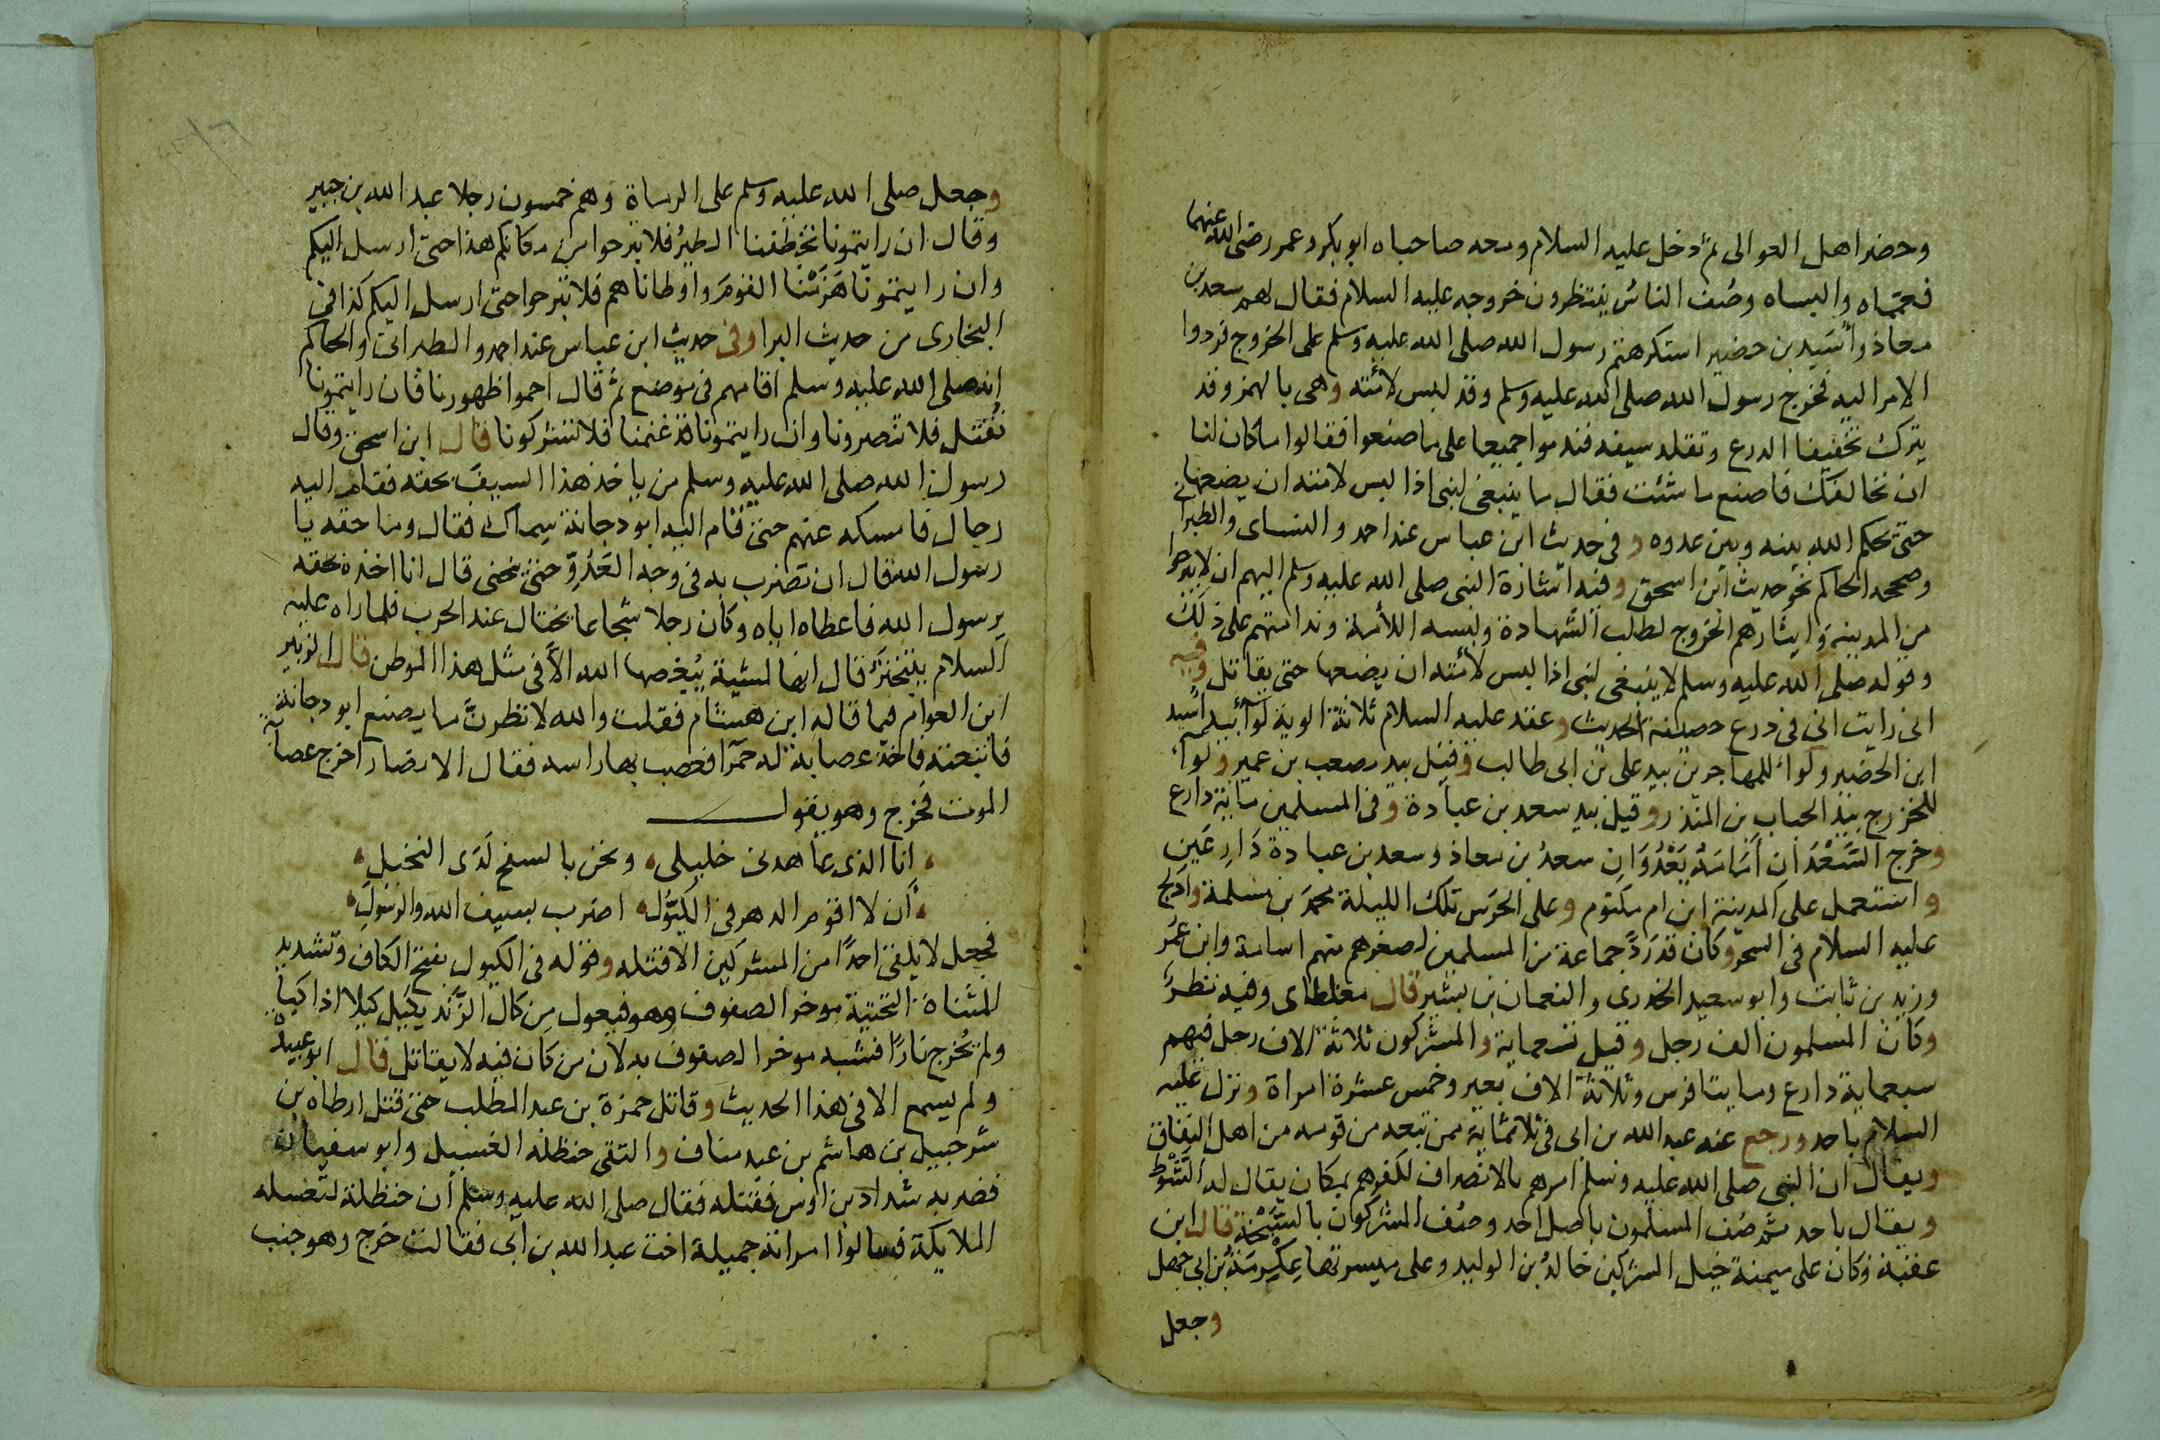 وحضر اهل العوالى ثم دخل عليه السلام ومعه صاحباه ابو بكر وعمر رضى الله عنهما
فعمماه والبساه وصف الناس ينتظرون خروجه عليه السلام فقال لهم سعد بن
معاذ وأسيد بن حضير استكرهتم رسول الله صلى الله عليه وسلم على الخروج فردوا
الامر اليه فخرج رسول الله صلى الله عليه وسلم وقد لبس لأمته وهى بالهمز وقد
يترك تخفيفا الدرع وتقلد سيفه فندموا جميعا على ما صنعوا فقالوا ما كان لنا
ان نخالفك فاصنع ما شئت فقال ما ينبغى لنبى اذا لبس لامته ان يضعها
حتى يحكم الله بينه وبين عدوه وفى حديث ابن عباس عند احمد والنساى والطبرانى
وصححه الحاكم نحو حديث ابن اسحق وفيه اشارة النبى صلى الله عليه وسلم اليهم ان لا يبرحوا
من المدينة وايثارهم الخروج لطلب الشهادة ولبسه اللأمة وندامتهم على ذلك
وقوله صلى الله عليه وسلم لا ينبغى لنبى اذا لبس لأمته ان يضعها حتى يقاتل وفيه
انى رايت انى فى درع حصينة الحديث وعقد عليه السلام ثلاثة الوية لوآء بيد أسيد
ابن الحضير ولواء للمهاجرين بيد على بن ابى طالب وقيل بيد مصعب بن عمير ولواء
للخزرج بيد الحباب بن المنذر وقيل بيد سعد بن عبادة وفى المسلمين مائة دارع
وخرج السَّعْدَان أمَامَهُ يَعْدُوَانِ سعدُ بن معاذ وسعد بن عبادة دَارِعَين
واستعمل على المدينة ابن ام مكتوم وعلى الحرس تلك الليلة محمد بن مسلمة وادلج
عليه السلام فى السحر وكان قد رَدَّ جماعة من المسلمين لصغرهم منهم اسامة وابن عمر
وزيد بن ثابت وابو سعيد الخدرى والنعمان بن بشير قال مغلطاى وفيه نظر
وكان المسلمون الف رجل وقيل تسعماية والمشركون ثلاثة الاف رجل فيهم
سبعماية دارع ومايتا فرس وثلاثة الاف بعير وخمس عشرة امراة ونزل عليه
السلام باحد ورجع عنه عبد الله بن ابى فى ثلاثماية ممن تبعه من قومه من اهل النفاق
ويقال ان النبى صلى الله عليه وسلم امرهم بالانصراف لكفرهم بمكان يقال له الشوط
ويقال باحد ثم صف المسلمون باصل احد وصف المشركون بالسَّبْخَة قال ابن
عقبة وكان على ميمنة خيل المشركين خالدُ بن الوليد وعلى ميسرتها عِكْرِمَةُ بن ابى جهل
وجعل
وجعل صلى الله عليه وسلم على الرماة وهم خمسون رجلا عبد الله بن جبير
وقال ان رايتمونا تخطفنا الطيرُ فلا تبرحوا من مكانكم هذا حتى ارسل اليكم
وان رايتمونا هَزَمْنا القومَ واوطاناهم فلا تبرحوا حتى ارسل اليكم كذا فى
البخارى من حديث البرا وفى حديث ابن عباس عند احمد والطبرانى والحاكم
انه صلى الله عليه وسلم اقامهم فى موضع ثم قال احموا ظهورنا فان رايتمونا
نُقتل فلا تنصرونا وان رايتمونا قد غنمنا فلا تشركونا قال ابن اسحق وقال
رسول الله صلى الله عليه وسلم من ياخذ هذا السيفَ بحقه فقام اليه
رجال فامسكه عنهم حتى قام اليه ابو دجانة سِماك فقال وما حقه يا
رسول الله قال ان تضرب به فى وجه العَدُوّ حتى ينحنى قال انا اخذه بحقه
يرسول الله فاعطاه اياه وكان رجلا شجاعا يختال عند الحرب فلما راه عليه
السلام يتبختر قال انها لمشية يُبغضها الله الاّ فى مثل هذا الموطن قال الزبير
ابن العوام فيما قاله ابن هشام فقلت والله لانظرنَّ ما يصنع ابو دجانة
فاتبعته فاخذ عصابة له حمرآ فعصب بها راسه فقال الانصار اخرج عصابة
الموت فخرج وهو يقول
انا الذى عاهدنى خليلى ونحن بالسفح لَدَى النخيل
أن لا اقوم الدهر فى الكَيُّول اضرب بسيف الله والرسول
فجعل لا يلقى احدًا من المشركين الا قتله وقوله فى الكيول بفتح الكاف وتشديد
المثناة التحتية موخر الصفوف وهو فيعول مِن كال الزَّند يكيل كيلا اذا كبا
ولم يُخرج نارًا فشبه موخر الصفوف به لان من كان فيه لا يقاتل قال ابو عبيدة
ولم يسمع الا فى هذا الحديث وقاتل حمزة بن عبد المطلب حتى قتل ارطاه بن
شرحبيل بن هاشم بن عبد مناف والتقى حنظلة الغسيل وابو سفيان
فضربه شداد بن اوس فقتله فقال صلى الله عليه وسلم أن حنظلة لتغسله
الملايكة فسالوا امراته جميلة اخت عبد الله بن أبى فقالت خرج وهو جنب